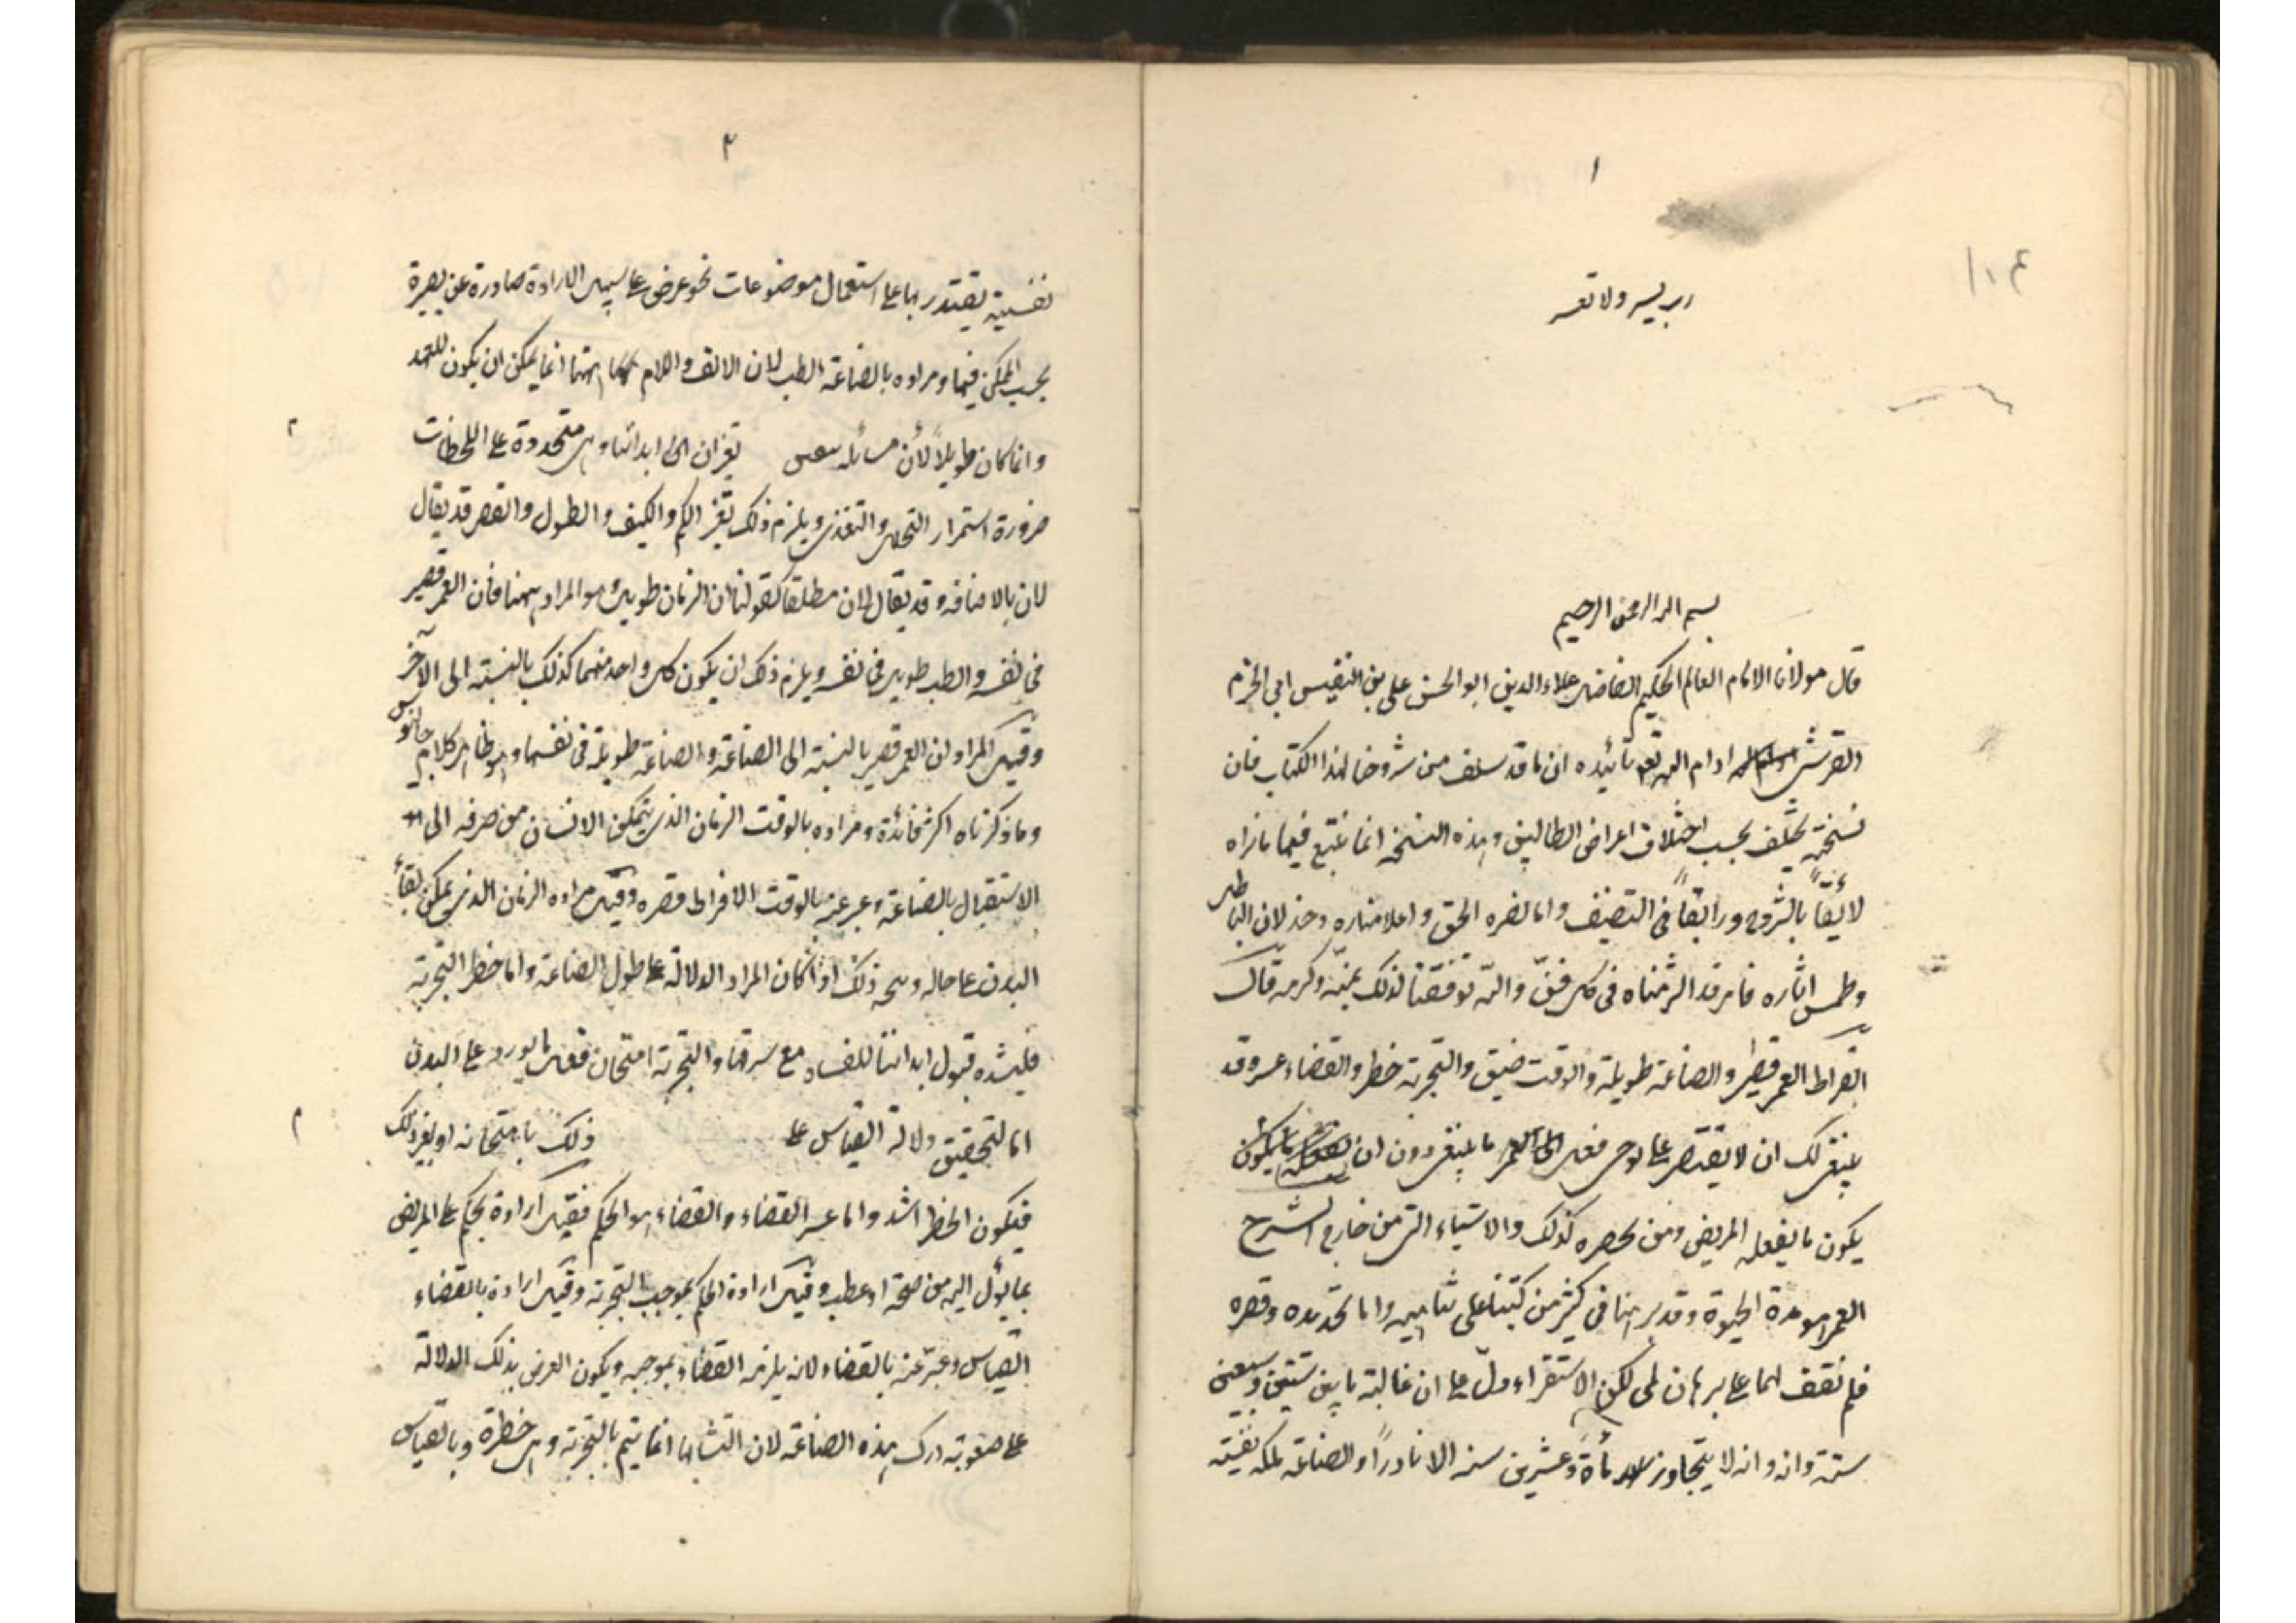 ١
رب يسر ولا تعسر
١٠٤
بسم الله الرحمن الرحيم
قال مولانا الامام العالم الحكيم الفاضل علاء الدين ابو الحسن على بن النفيس ابى الحزم
القرشى ادام الله تعه تأئيده ان ما قد سلف من شروحنا لهذا الكتاب فان
نسخته تختلف بحسب اختلاف اغراض الطالبين وهذه النسخة انما نتبع فيها ما نراه
لايقاً بالشروح ورايقاً فى التصنيف واما نصره الحق واعلا مناره وخذلان الباطل
وطمس اثاره فامر قد الزمناه فى كل فنّ والله توفقنا لذلك بمنّه وكرمه قال
ابقراط العمر قصير والصناعة طويلة والوقت ضيق والتجربة خطر والقضاء عسر وقد
ينبغى لك ان لا تقتصر على توخى فعل ما ينبغى دون ان يكون
يكون ما يفعله المريض ومن يحضره كذلك والاشياء التى من خارج الشرح
العمر هو مدة الحيوة وقد برهنا فى كثير من كتبنا على تناهيه واما تحديده وقصره
فلم نقف لهما على برهان لمى لكن الاستقراء دلّ على ان غالبته ما بين ستين وسبعين
سنة وانه وانه لا يتجاوز مأة وعشرين سنة الا نادراً والصناعة ملكه نفيسة
٢
نفسية يقتدر بها على استعمال موضوعات نحو غرض على سبيل الارادة صادرة عن بصيرة
بحسب الممكن فيها ومراده بالصناعة الطب لان الالف واللام ههنا انما يمكن ان يكون للعهد
وانما كان طويلاً لأن مسائله تغيران الى ابداننا وهى متجددة على اللحظات
ضرورة استمرار التحلل والتغذى ويلزم ذلك تغير الكم والكيف والطول والقصر قد يقال
لان بالاضافه وقد يقال لان مطلقا كقولنا ان الزمان طويل وهو المراد ههنا فان العمر قصير
فى نفسه والطب طويل فى نفسه ويلزم ذلك ان يكون كل واحد منهما كذلك بالنسبة الى الآخر
وقيل المراد ان العمر قصير بالنسبة الى الصناعة والصناعة طويلة فى نفسها وهو ظاهر كلام جالنوس
وما ذكرناه اكثر فائدة ومراده بالوقت الزمان الذى يتمكن الانسان من صرفه الى
الاشتغال بالصناعة وعبر عنه بالوقت لافراط قصره وقيل مراده الزمان الذى يمكن بقأ
البدن على حاله وسحه ذلك اذا كان المراد الدلالة على طول الصناعة واما خطر التجربة
فليشده قبول ابداننا للفساد مع سرفها والتجربة امتحان فعل ما يورد على البدن
اما لتحقيق دلالة القياس على ذلك بامتحانه او بغير ذلك
فيكون الخطر اشد واما عسر القضاء والقضاء هو الحكم فقيل ارادة يحكم على المريض
بما يؤل اليه من صحة او عطب وقيل ارادة الحكم بموجب التجربة وقيل ارادة بالقضاء
القياس وعبّر عنه بالقضاء لانه يلزمه القضاء بموجبه ويكون الغرض بذلك الدلالة
على صعوبة درك هذه الصناعة لان اكتسابها انما يتم بالتجربة وهى خطرة وبالقياس